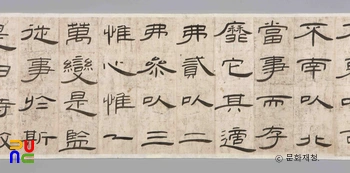 不南以北
當事而存
靡它其適
弗貳以二
弗參以三
惟心惟一
萬變是監
從事於斯
是曰持敬
© 문화재청.